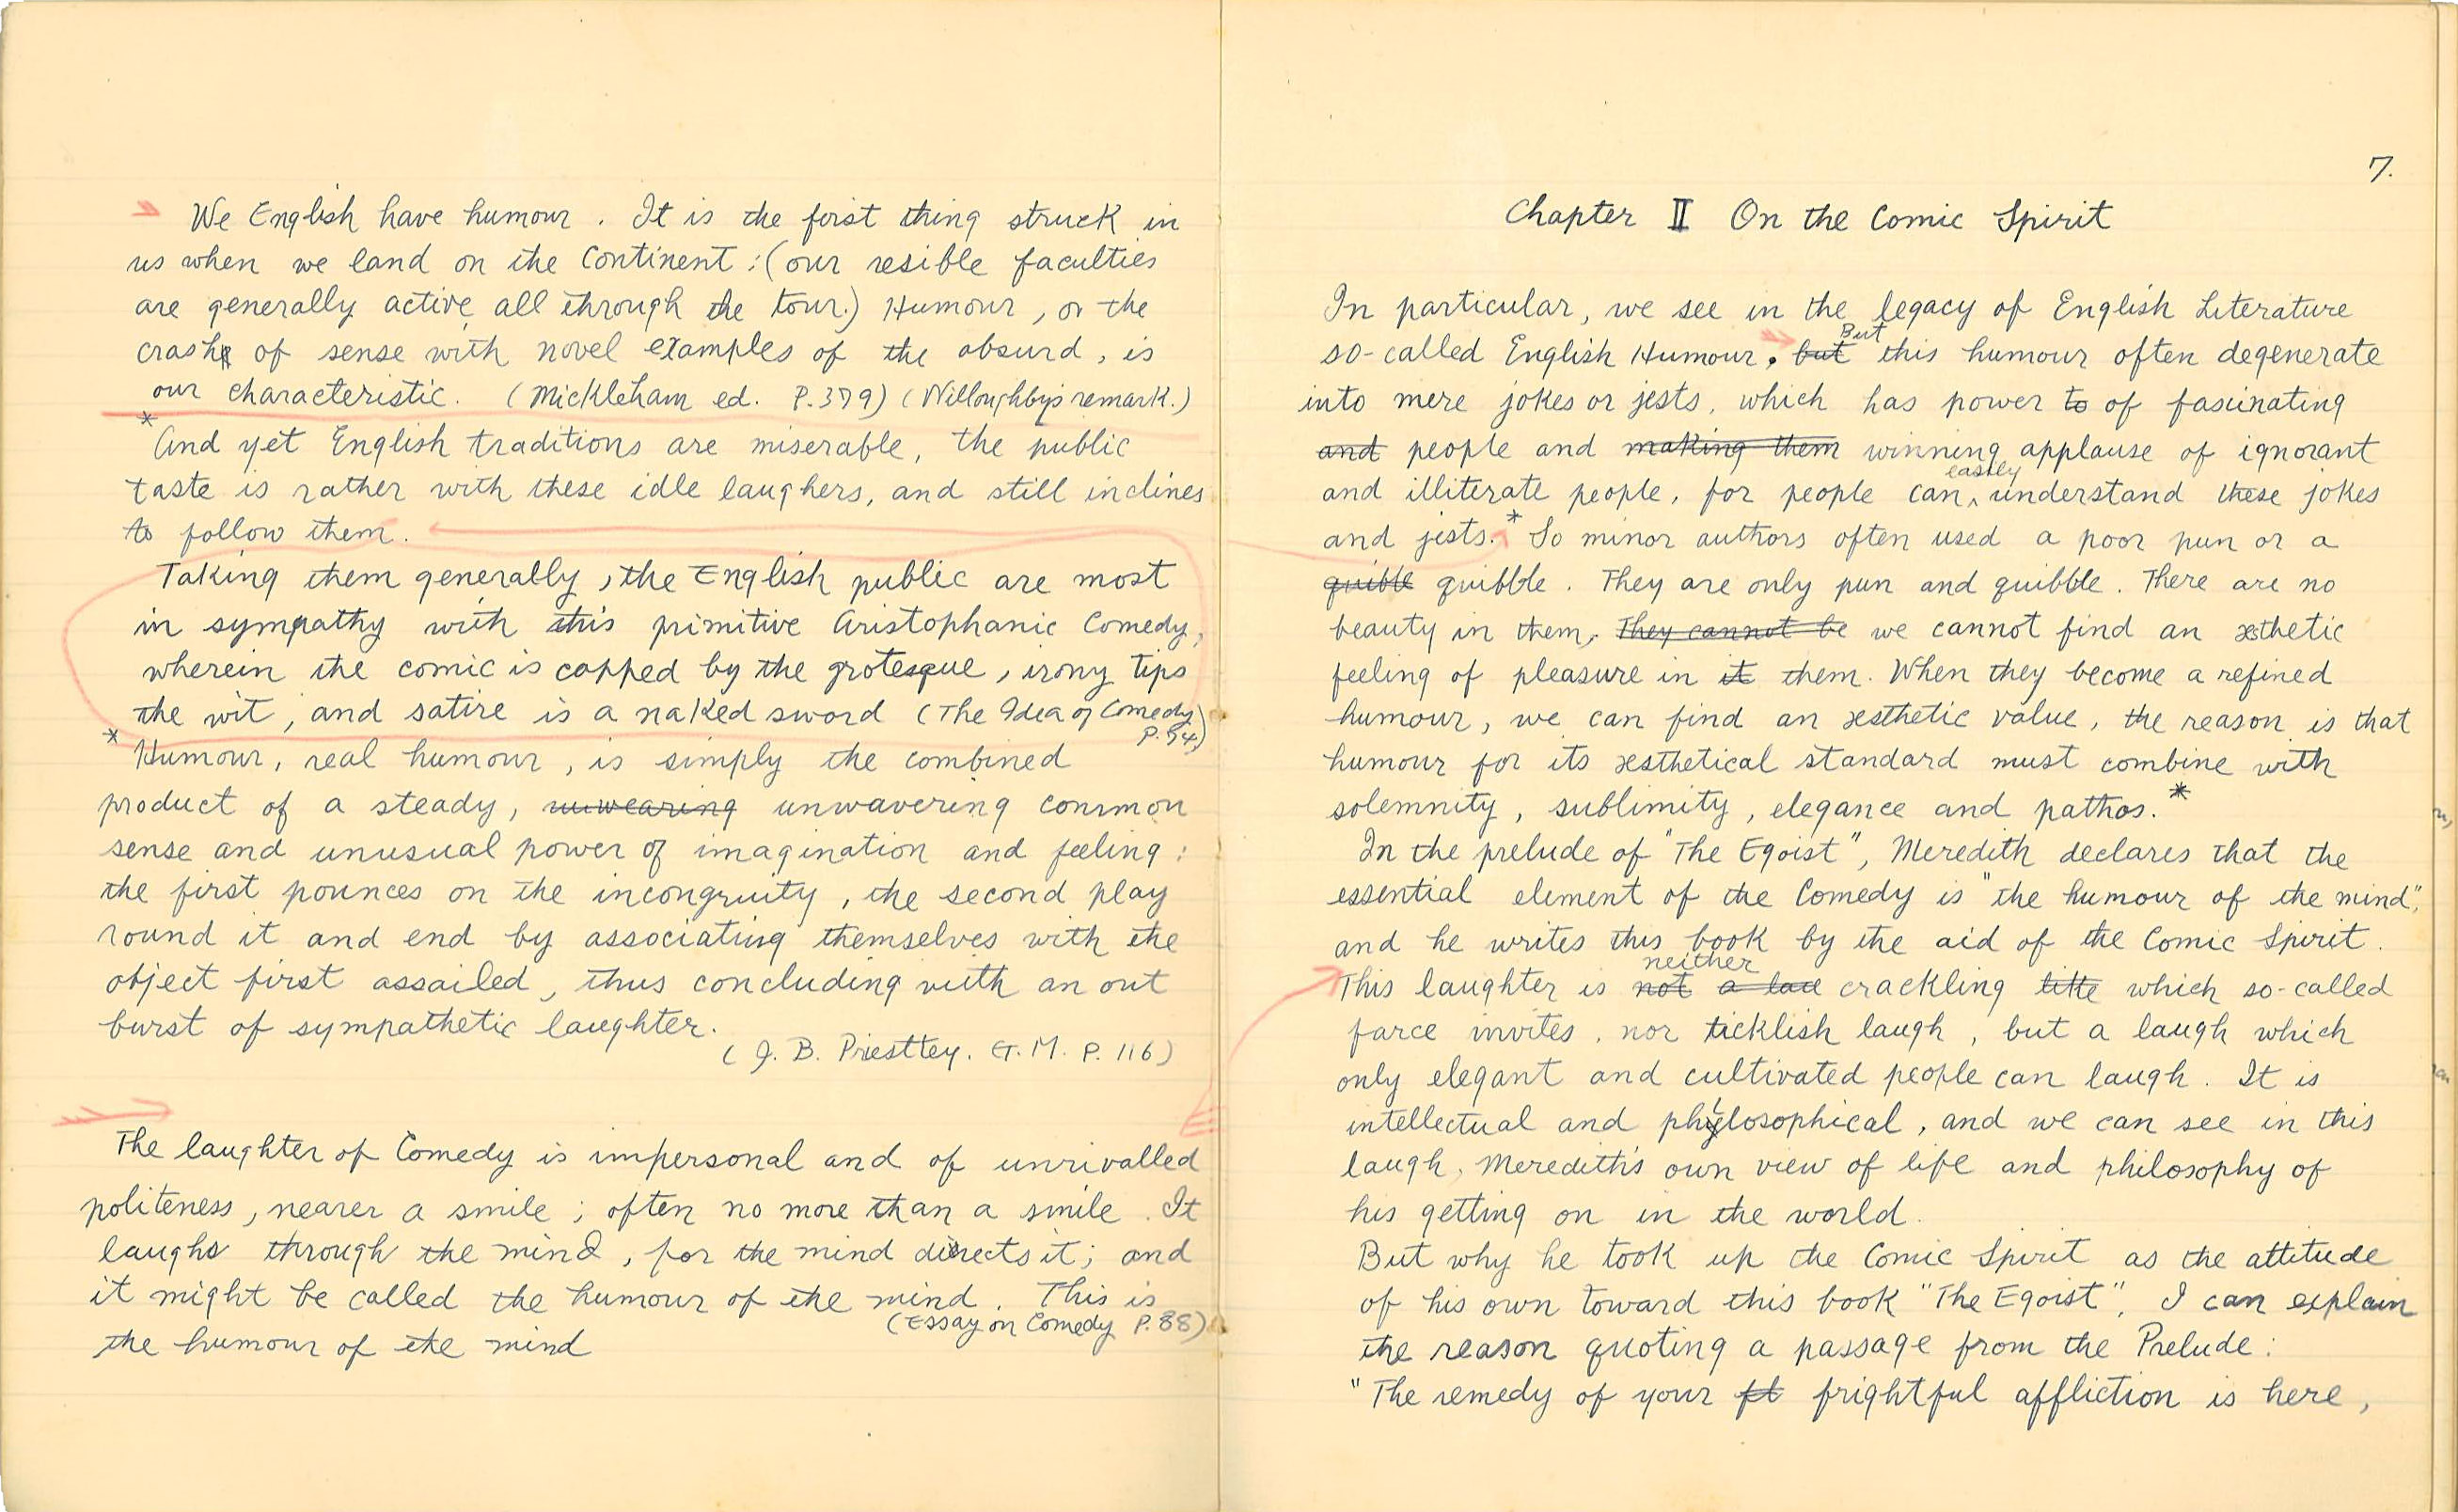 We English have humour. It is the first thing struck in
us when we land on the Continent :(our resible faculties
are generally active all through the tour.) Humour, or the
crash of sense with novel examples of the absurd, is
our characteristic. (Mickleham ed. P.379) (Willoughby's remark.)
* And yet English traditions are miserable, the public
taste is rather with these idle laughers, and still inclines
to follow them.
Taking them generally, the English public are most
in sympathy with this primitive Aristophanic Comedy,
wherein the comic is capped by the grotesque, irony tips
the wit, and satire is a naked sword (The Idea of Comedy
P.54)
* Humour, real humour, is simply the combined
product of a steady, unwearing unwavering common
sense and unusual power of imagination and feeling :
the first pounces on the incongruity, the second play
round it and end by associating themselves with the
object first assailed, thus concluding with an out
burst of sympathetic laughter.
(J. B. Priesttey. G. M. P. 116)
The laughter of Comedy is impersonal and of unrivalled
politeness, nearer a smile ; often no more than a smile. It
laughs through the mind, for the mind directs it; and
it might be called the humour of the mind. This is
(Essay on Comedy P.88)
the humour of the mind
7.
Chapter II On the Comic Spirit
In particular, we see in the legacy of English Literature
so-called English Humour. but But this humour often degenerate
into mere jokes or jests, which has power to of fascinating
and people and making them winning applause of ignorant
and illiterate people, for people can easily understand these jokes
and jests.* So minor authors often used a poor pun or a
quible quibble. They are only pun and quibble. There are no
beauty in them, They cannot be we cannot find an æsthetic
feeling of pleasure in it them. When they become a refined
humour, we can find an æsthetic value, the reason is that
humour for its æsthetical standard must combine with
solemnity, sublimity, elegance and pathos.*
In the prelude of "The Egoist", Meredith declares that the
essential element of the Comedy is "the humour of the mind",
and he writes this book by the aid of the Comic Spirit.
This laughter is not neither a lau crackling litte which so-called
farce invites, nor ticklish laugh, but a laugh which
only elegant and cultivated people can laugh. It is
intellectual and philosophical, and we can see in this
laugh, Meredith's own view of life and philosophy of
his getting on in the world.
But why he took up the Comic Spirit as the attitude
of his own toward this book "The Egoist", I can explain
the reason quoting a passage from the Prelude :
"The remedy of your ft frightful affliction is here,